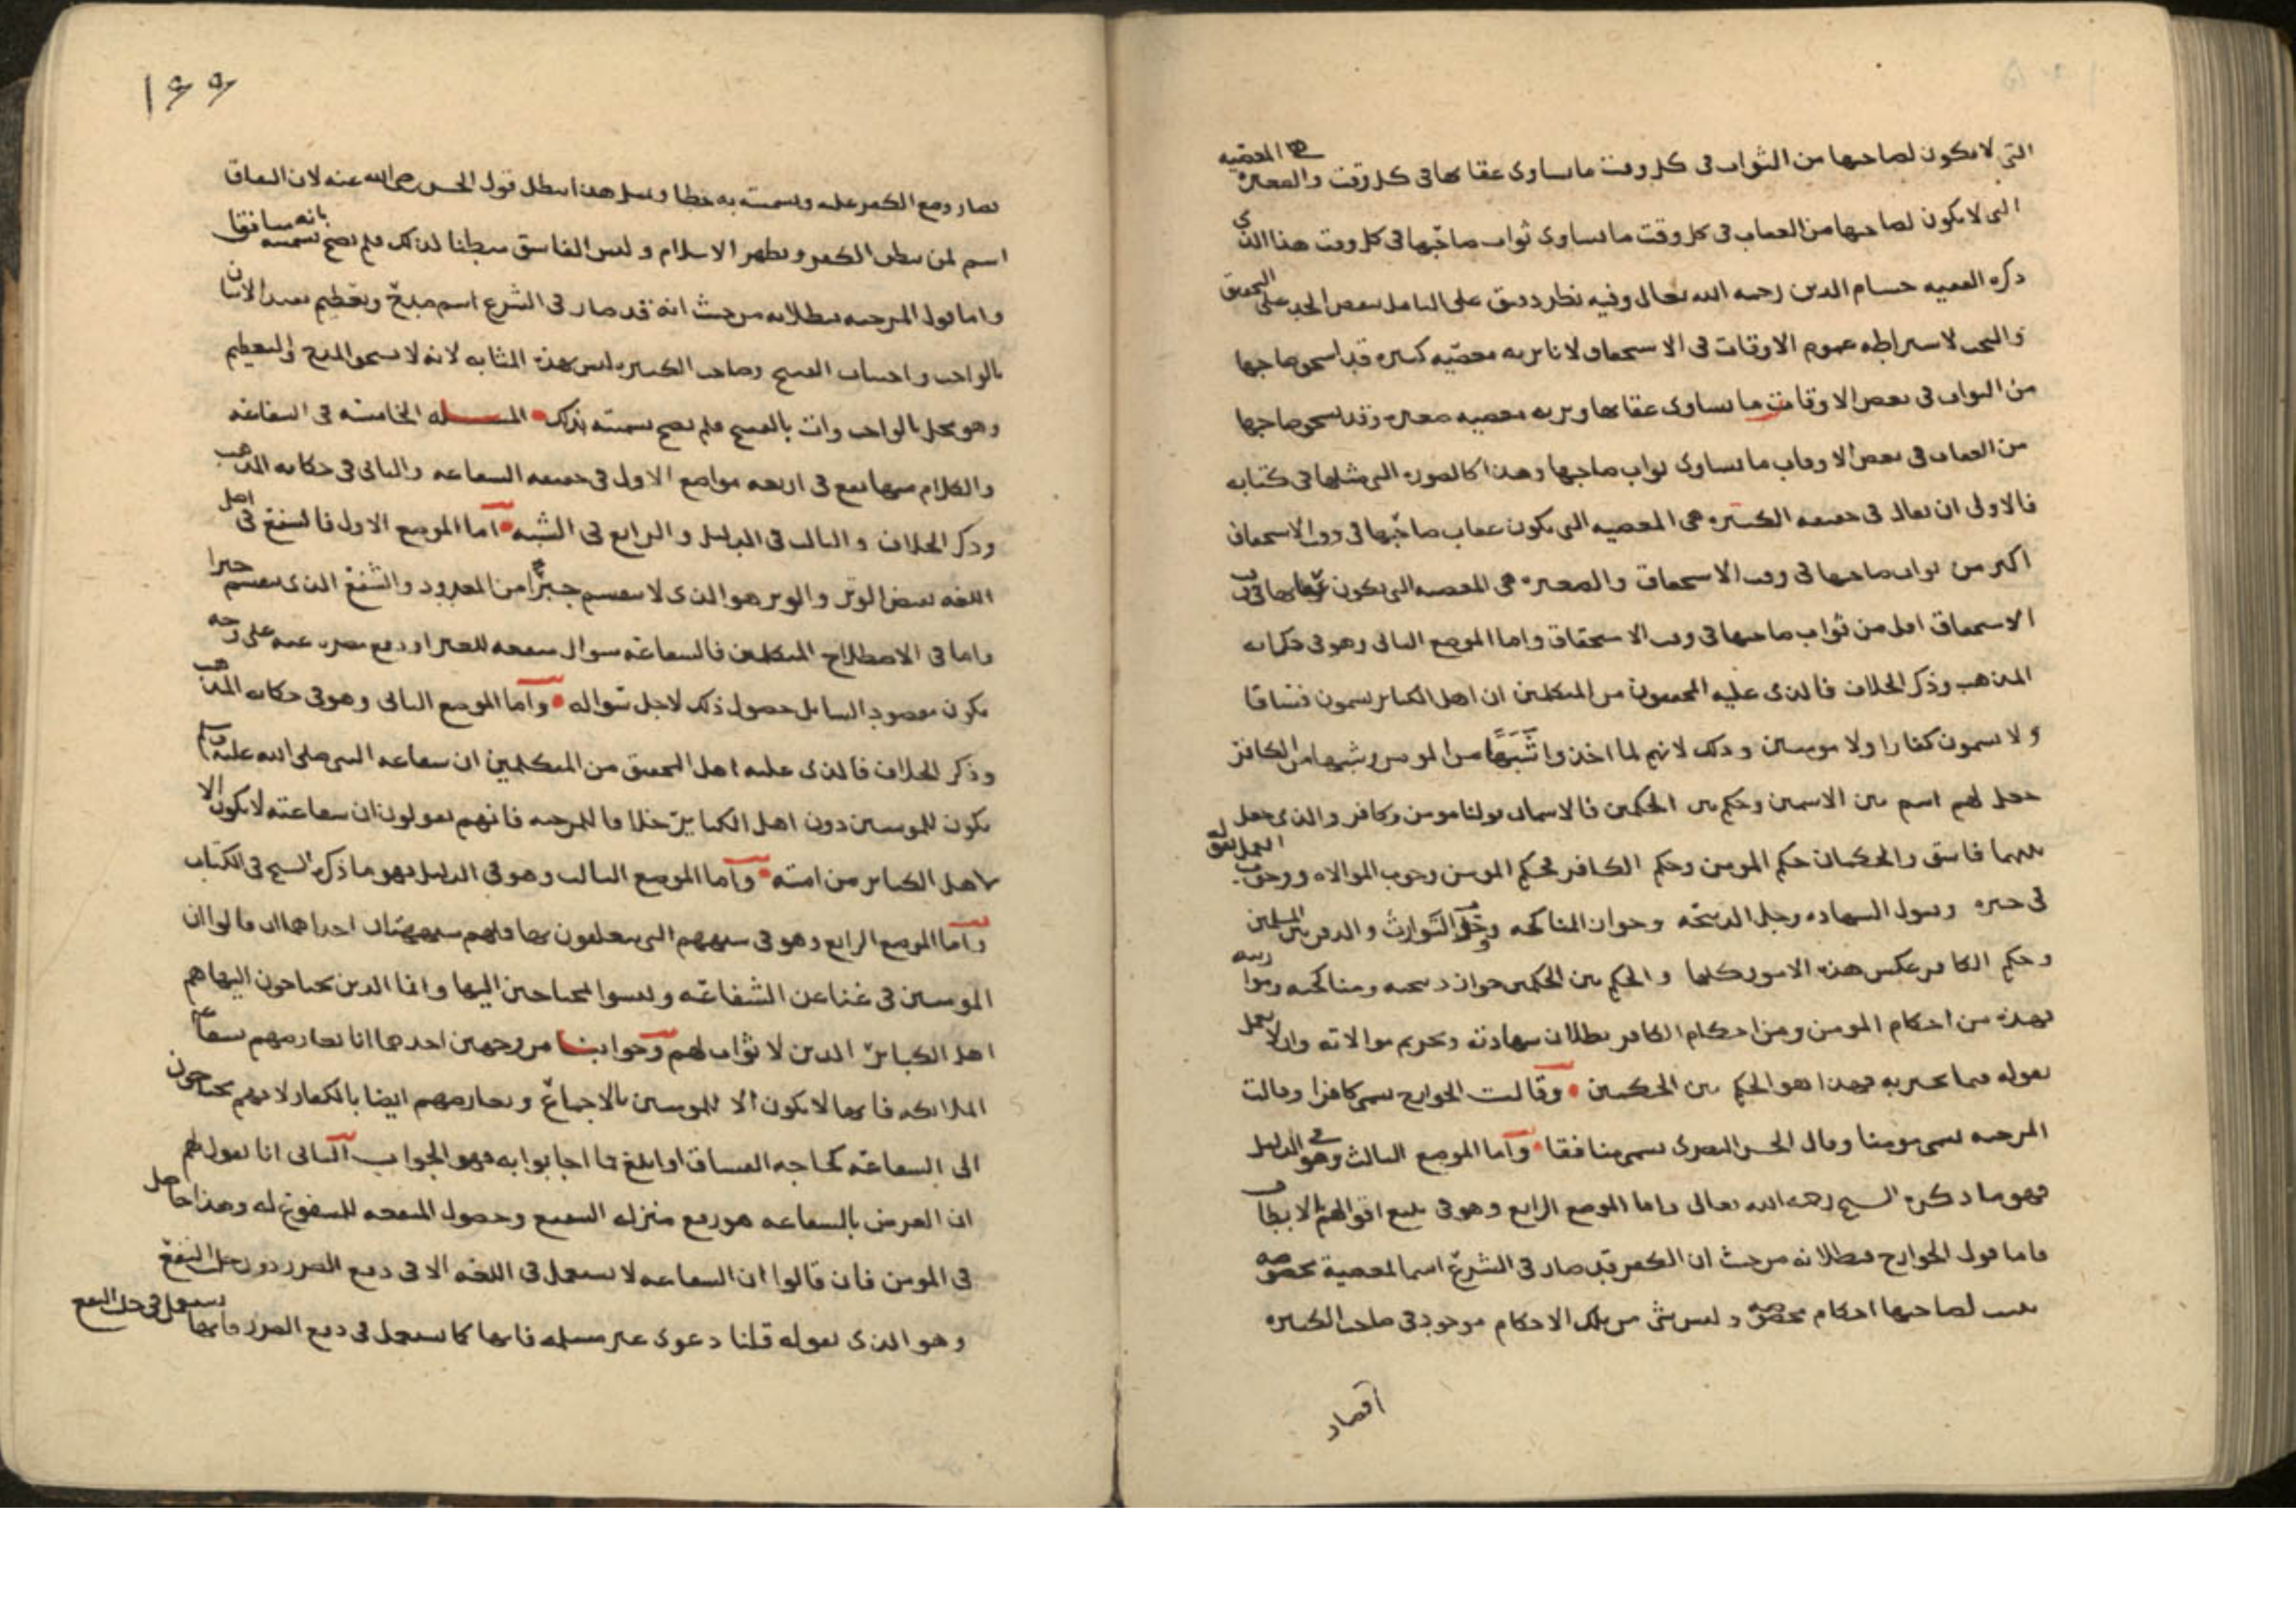 التي لا يكون لصاحبها من الثواب في كل وقت ما يساوي عقابها في كل وقت والصغيرة هي المعصية
التي لا يكون لصاحبها من العقاب في كل وقت ما يساوي ثواب صاحبها في كل وقت هذا الذي
ذكره الفقيه حسام الدين رحمه الله تعالى وفيه نظر دقيق على التامل بعض الحد على التحقيق
لاشتراطه عموم الاوقات في الاستحقاق لانا نريه معصية كبيرة قد استحق صاحبها
من الثواب في بعض الاوقات ما يساوي عقابها ونريه معصية صغيرة وقد استحق صاحبها
من العقاب في بعض الاوقات ما يساوي ثواب صاحبها وهذا كالصورة التي مثلها في كتابه
فالاولى ان يقال في حقيقة الكبيرة هي المعصية التي يكون عقاب صاحبها في وقت الاستحقاق
اكبر من ثواب صاحبها في وقت الاستحقاق والصغيرة هي المعصية التي يكون عقابها في وقت
الاستحقاق اقل من ثواب صاحبها في وقت الاستحقاق واما الموضع الثاني وهو في حكاية
المذهب وذكر الخلاف فالذي عليه المحققون من المتكلمين ان اهل الكبائر يسمون فساقا
ولا يسمون كفارا ولا مومنين وذلك لانهم لما اخذوا شبها من المومن وشبها من الكافر
جعل لهم اسم بين الاسمين وحكم بين الحكمين فالاسمان قولنا مومن وكافر والذي جعل
بينهما فاسق والحكمان حكم المومن وحكم الكافر فحكم المومن وجوب الموالاه
في خبره وقبول الشهاده وحل الذبيحة وجواز المناكحه والتوارث والدفن بين المسلمين
وحكم الكافر عكس هذه الامور كلها والحكم بين الحكمين جواز ذبيحته ومناكحته
فهذه من احكام المومن ومن احكام الكافر بطلان شهادته وتحريم موالاته وان لا يعمل
بقوله فيما يخبر به فهذا هو الحكم بين الحكمين وقالت الخوارج يسمى كافرا وقالت
المرجيه يسمى مومنا وقال الحسن البصري يسمى منافقا واما الموضع الثالث وهو في الدليل
فهو ما ذكره الشيخ رحمه الله تعالى واما الموضع الرابع وهو في تتبع اقوالهم بالابطال
فاما قول الخوارج فبطلانه من حيث ان الكفر قد صار في الشرع اسما لمعصية مخصوصه
يثبت لصاحبها احكام مخصوصه وليس شي من تلك الاحكام موجود في صاحب الكبيره
فصار
١٩٩
فصار وضع الكفر عليه وتسميته به خطا وبمثل هذا ابطل قول الحسن رضي الله عنه لان النفاق
اسم لمن يبطن الكفر ويظهر الاسلام وليس الفاسق مبطنا لذلك فلم يصح تسميته بانه منافقا
واما قول المرجيه فبطلانه من حيث انه قد صار في الشرع اسم مدح وتعظيم يفيد الاتيان
بالواجب واجتناب القبيح وصاحب الكبيره ليس بهذه المثابه لانه لا يستحق المدح والتعظيم
وهو مخل بالواجب وات بالقبيح فلم يصح تسميته بذلك المسله الخامسه في الشفاعه
والكلام منها يقع في اربعه مواضع الاول في حقيقه الشفاعه والثاني في حكايه المذهب
وذكر الخلاف والثالث في الدليل والرابع في الشبه اما الموضع الاول فالشفع في اصل
اللغه نقيض الوتر والوتر هو الذي لا ينقسم جبرا من المعدود والشفع الذي ينقسم جبرا
واما في الاصطلاح المتكلمين فالشفاعه سوال منفعه للغير او دفع مضره عنه على وجه
يكون مقصود السايل حصول ذلك لاجل سواله واما الموضع الثاني وهو في حكايه المذهب
وذكر الخلاف فالذي عليه اهل التحقيق من المتكلمين ان شفاعه النبي صلى الله عليه وسلم
يكون للمومنين دون اهل الكباير خلافا للمرجيه فانهم يقولون ان شفاعته لا يكون الا
لاهل الكباير من امته واما الموضع الثالث وهو في الدليل فهو ما ذكره الشيخ في الكتاب
واما الموضع الرابع وهو في شبههم التي يتعلقون بها فلهم شبهتان احداهما ان قالوا ان
المومنين في غنا عن الشفاعه وليسوا بمحتاجين اليها وانما الذين يحتاجون اليها هم
اهل الكباير الذين لا ثواب لهم وجوابنا من وجهين احدهما انا نعارضهم بشفاعه
الملايكه فانها لا يكون الا للمومنين بالاجماع ونعارضهم ايضا بالكفار لانهم يحتاجون
الى الشفاعه كحاجه الفساق او ابلغ فما اجابوا به فهو الجواب الثاني انا نقول لهم
ان الغرض بالشفاعه هو رفع منزله الشفيع وحصول المنفعه للمشفوع له وهذا حاصل
في المومن فان قالوا ان الشفاعه لا يستعمل في اللغه الا في دفع الضرر دون جلب النفع
وهو الذي نقوله قلنا دعوى غير مسلمه فانها كما يستعمل في دفع الضرر فانها يستعمل في جلب النفع